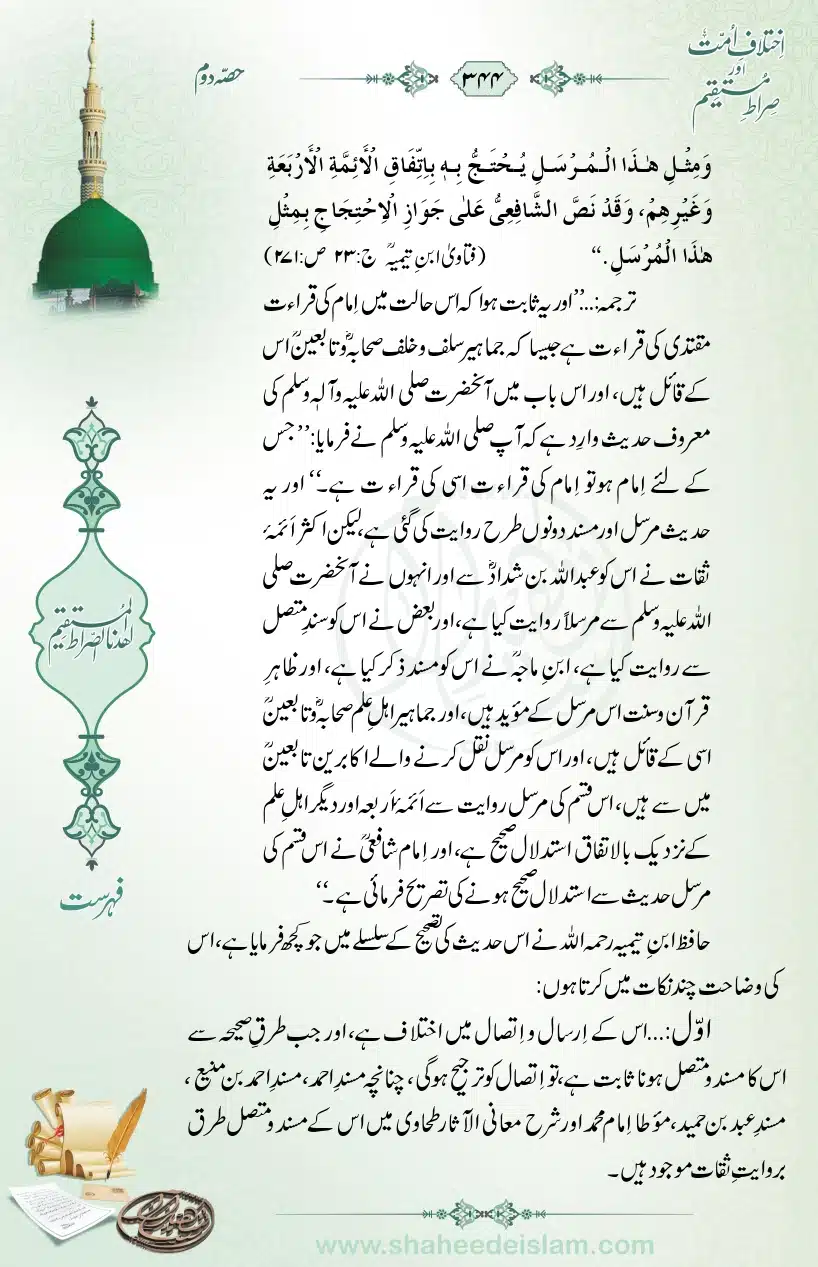 اِختلافِ اُمّت
اور
صِراطِ مُستقیم
۳۴۴
حصّہ دوم
وَمِثْلِ هٰذَا الْمُرْسَلِ يُحْتَجُّ بِهٖ بِاِتِّفَاقِ الْأَئِمَّةِ الْأَرْبَعَةِ
وَغَيْرِهِمْ، وَقَدْ نَصَّ الشَّافِعِيُّ عَلٰى جَوَازِ الْاِحْتِجَاجِ بِمِثْلِ
هٰذَا الْمُرْسَلِ.“ (فتاویٰ ابنِ تیمیہؒ ج:۲۳ ص:۲۷۱)
ترجمہ:...’’اور یہ ثابت ہوا کہ اس حالت میں اِمام کی قراءت
مقتدی کی قراءت ہے جیسا کہ جماہیر سلف وخلف صحابہؓ وتابعینؒ اس
کے قائل ہیں، اور اس باب میں آنحضرت صلی اللہ علیہ وآلہٖ وسلم کی
معروف حدیث وارِد ہے کہ آپ صلی اللہ علیہ وسلم نے فرمایا: ’’جس
کے لئے اِمام ہو تو اِمام کی قراءت اسی کی قراءت ہے۔‘‘ اور یہ
حدیث مرسل اور مسند دونوں طرح روایت کی گئی ہے، لیکن اکثر اَئمۂ
ثقات نے اس کو عبداللہ بن شدادؓ سے اور انہوں نے آنحضرت صلی
اللہ علیہ وسلم سے مرسلاً روایت کیا ہے، اور بعض نے اس کو سندِ متصل
سے روایت کیا ہے، ابنِ ماجہؒ نے اس کو مسند ذکر کیا ہے، اور ظاہرِ
قرآن وسنت اس مرسل کے مؤید ہیں، اور جماہیر اہلِ علم صحابہؓ وتابعینؒ
اسی کے قائل ہیں، اور اس کو مرسل نقل کرنے والے اکابرین تابعینؒ
میں سے ہیں، اس قسم کی مرسل روایت سے اَئمۂ اَربعہ اور دیگر اہلِ علم
کے نزدیک بالاتفاق استدلال صحیح ہے، اور اِمام شافعیؒ نے اس قسم کی
مرسل حدیث سے استدلال صحیح ہونے کی تصریح فرمائی ہے۔‘‘
حافظ ابنِ تیمیہ رحمہ اللہ نے اس حدیث کی تصحیح کے سلسلے میں جو کچھ فرمایا ہے، اس
کی وضاحت چند نکات میں کرتا ہوں:
اوّل:...اس کے اِرسال و اِتصال میں اختلاف ہے، اور جب طرقِ صحیحہ سے
اس کا مسند ومتصل ہونا ثابت ہے، تو اِتصال کو ترجیح ہوگی، چنانچہ مسندِ احمد، مسندِ احمد بن منیع،
مسندِ عبد بن حمید، مؤطا اِمام محمد اور شرح معانی الآثار طحاوی میں اس کے مسند ومتصل طرق
بروایتِ ثقات موجود ہیں۔
اِهدنا الصّراط المُستقیم
فہرست
www.shaheedeislam.com